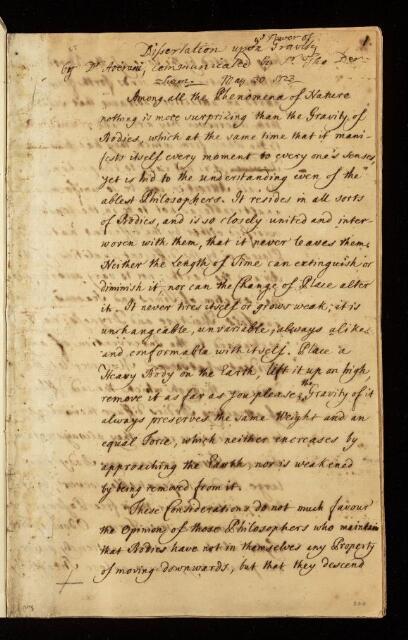 1.
Dissertation upon ye Power of Gravity
by Dr Averani, communicated by Sr Tho Der-
eham. May 30 1723
Among all the Phenomena of Nature
nothing is more surprizing than the Gravity of
Bodies, which at the same time that it mani-
fests itself every moment to every one's Senses,
yet is hid to the understanding even of the
ablest Philosophers. It resides in all sorts
of Bodies, and is so closely united and inter-
woven with them, that it never leaves them.
Neither the length of Time can extinguish or
diminish it, nor can the change of Place alter
it. It never tires itself or grows weak; it is
unchangeable, unvariable, always alike
and conformable with itself. Place a
Heavy Body on the Earth, lift it up on high
remove it as far as you please, the Gravity of it
always preserves the same Weight and an
equal Force, which neither encreases by
approaching the Earth, nor is weakened
by being removed from it.
These Considerations do not much favour
the Opinion of those Philosophers who maintain
that Bodies have not in themselves any Property
of moving downwards, but that they descend